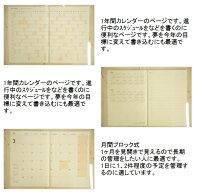 1年間カレンダーのページです。進
行中のスケジュールをなどを書くのに
便利なページです。夢を今年の目
標に変えて書き込むにも最適で
す。
1年間カレンダーのページです。進
行中のスケジュールをなどを書くのに
便利なページです。夢を今年の目
標に変えて書き込むにも最適で
す。
月間ブロック式
1ヶ月を見開きで見えるので長期
の管理をしたい人に最適です。
1日に1、2件程度の予定を管理す
るのに適しています。
3